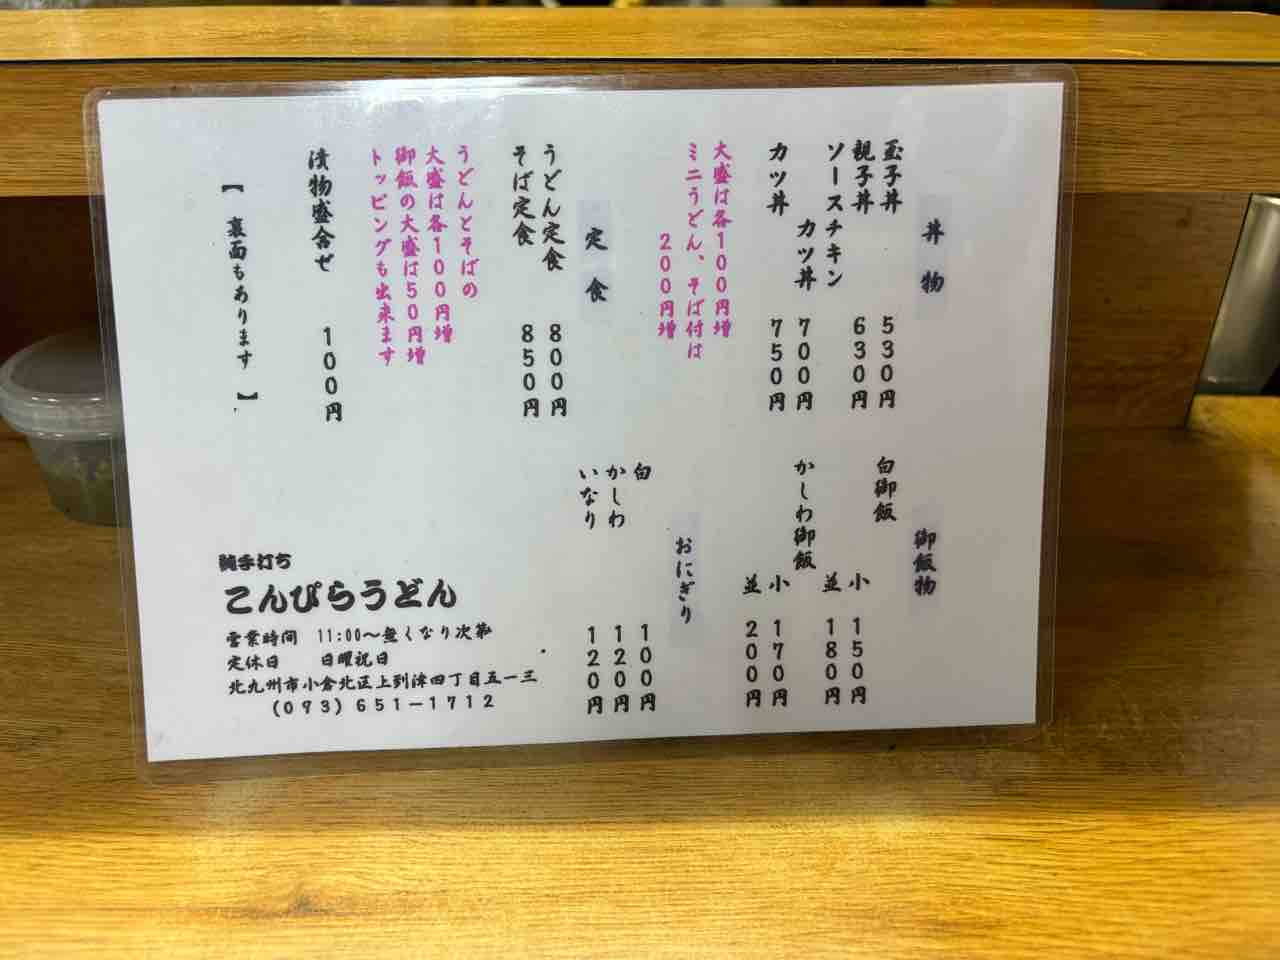 丼物
玉子丼 530円
親子丼 630円
ソースチキン
カツ丼 700円
カツ丼 750円
大盛は各100円増
ミニうどん、そば付は
200円増
定食
うどん定食 800円
そば定食 850円
うどんとそばの
大盛は各100円増
御飯の大盛は50円増
トッピングも出来ます
漬物盛合せ 100円
【 裏面もあります 】
御飯物
白御飯
小 150円
並 180円
かしわ御飯
小 170円
並 200円
おにぎり
白 100円
かしわ 120円
いなり 120円
純手打ち
こんぴらうどん
営業時間 11:00～無くなり次第
定休日 日曜祝日
北九州市小倉北区上到津四丁目五一三
(093)651-1712